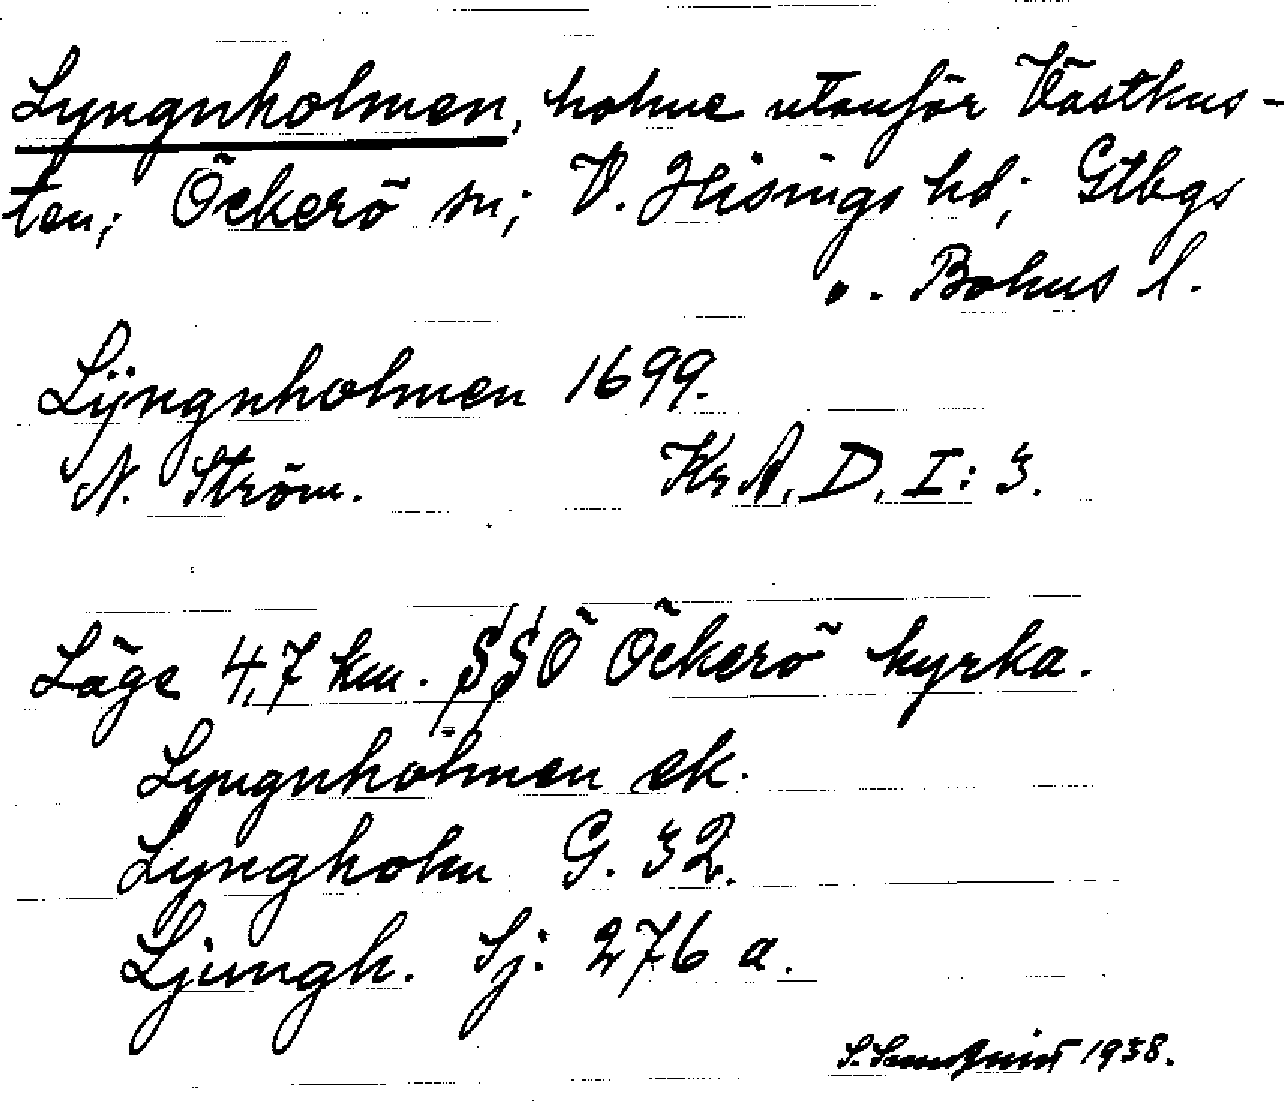 Lyngnholmen, holme utanför Västkus-
ten; Öckerö sn; V. Hisings hd; Gtbgs
o. Bohus l.
Lÿngnholmen 1699.
N. Ström. KrA, D, I: 3.
Läge 4,7 km. SSÖ Öckerö kyrka.
Lyngnholmen ek.
Lyngholm G. 32.
Ljungh. Sj: 276 a.
S. Sundquist 1938.